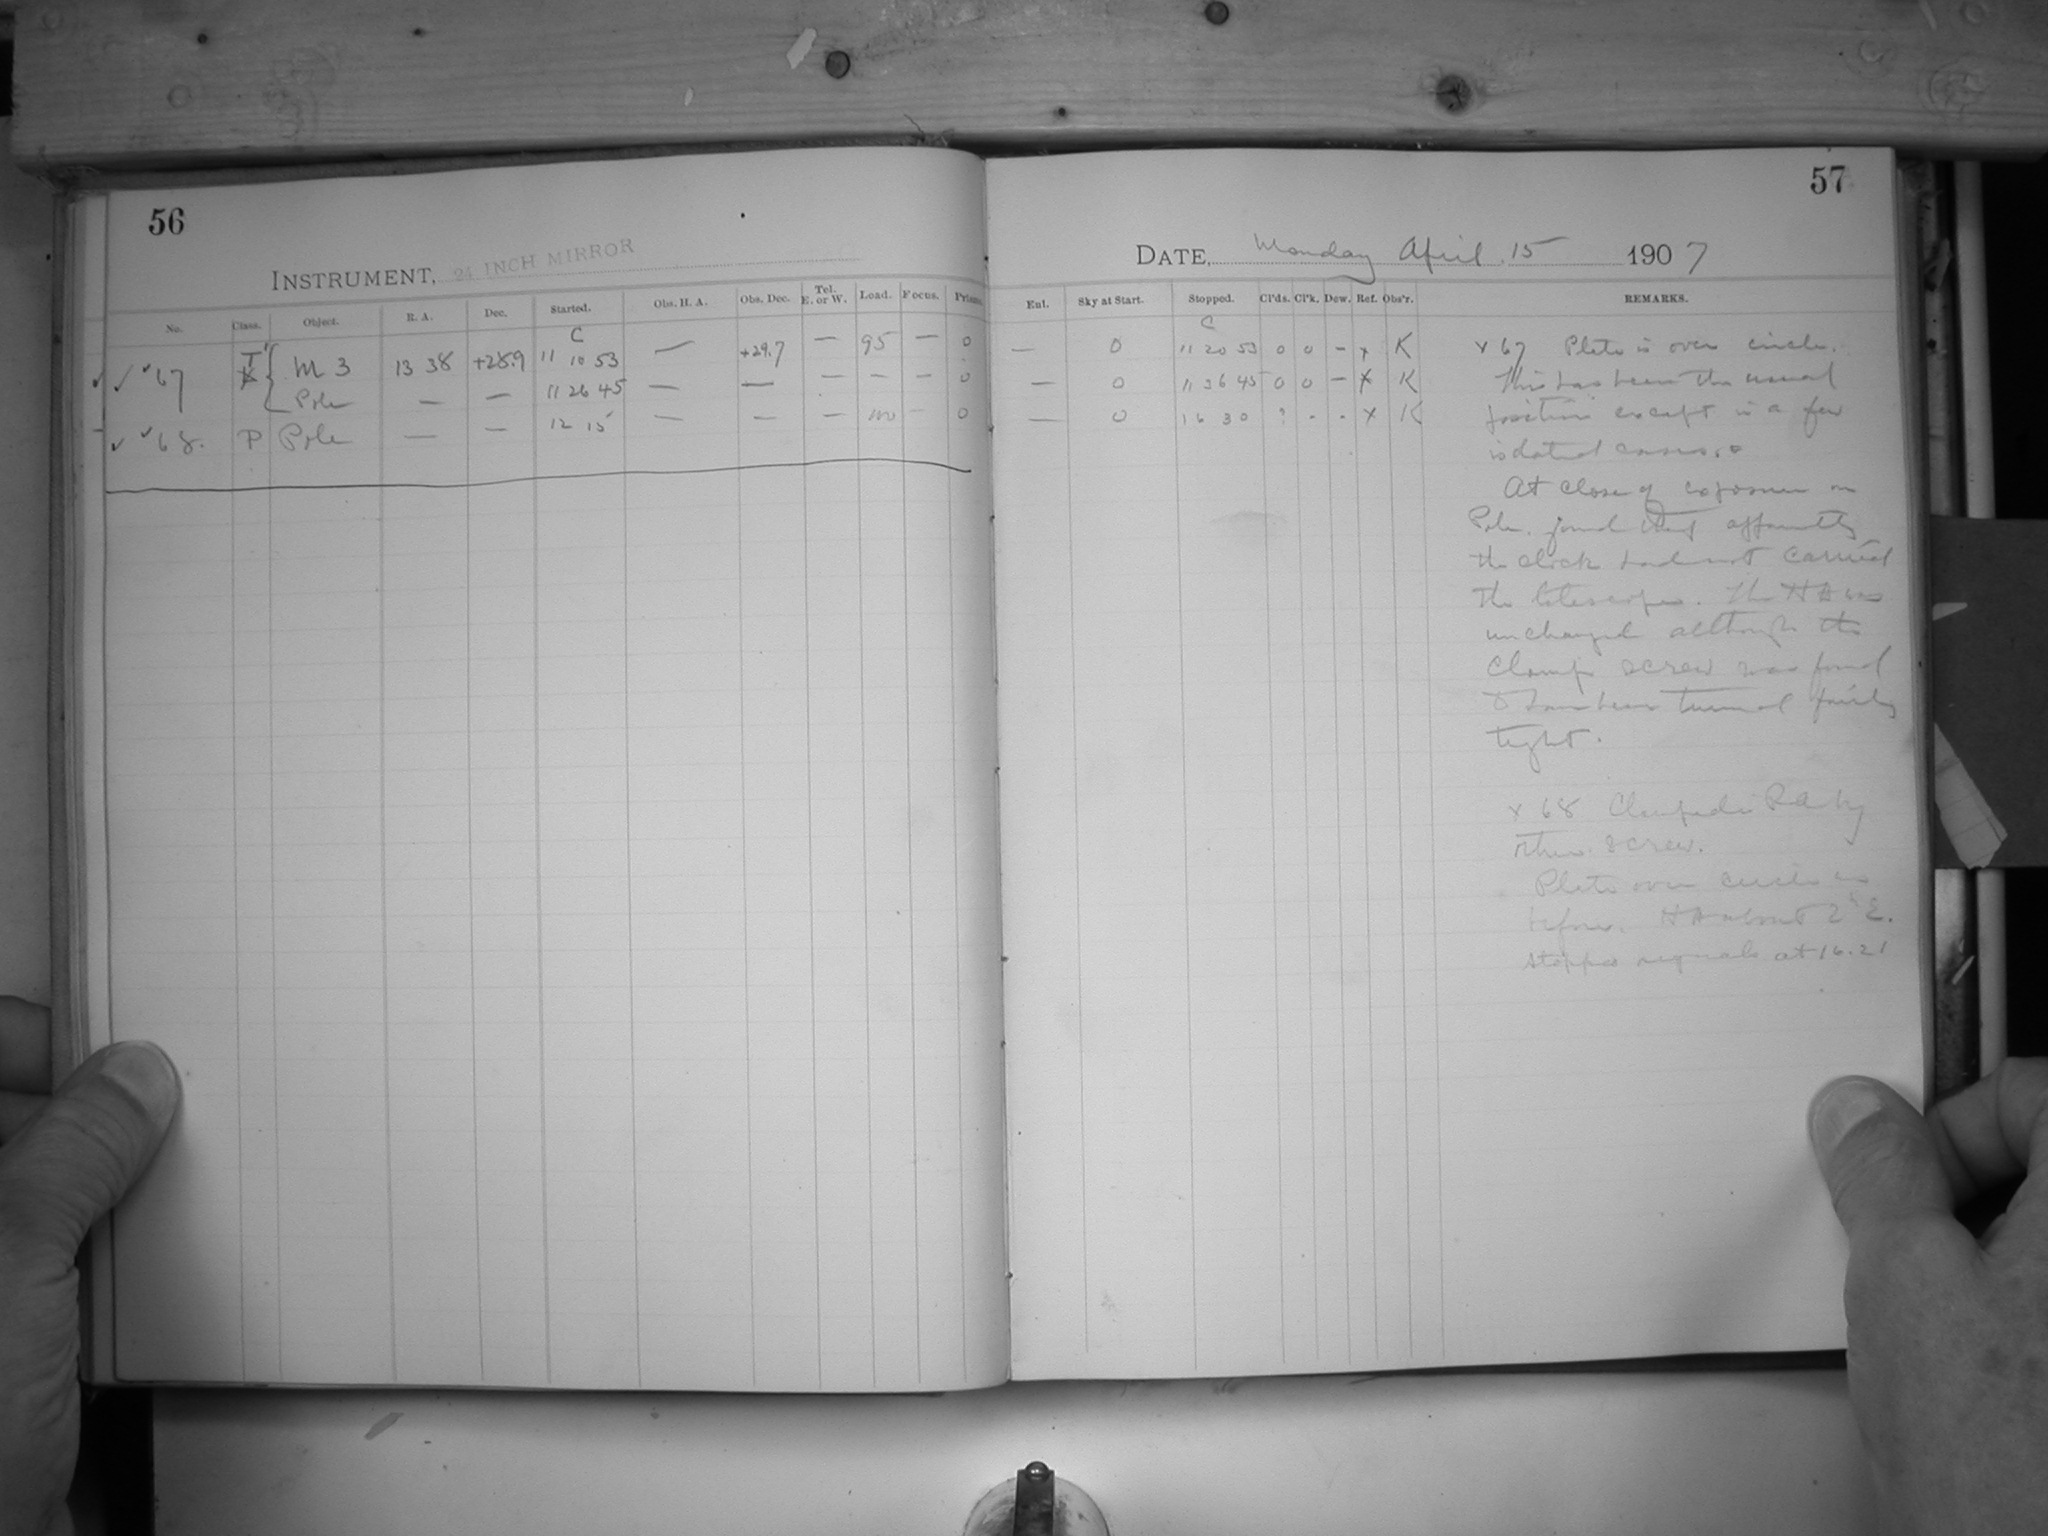 56
INSTRUMENT, 24 INCH MIRROR
No. Class. Object. R. A. Dec. Started. Obs. H. A. Obs. Dec. Tel. E. or W. Load. Focus. Prism.
C
✓ ✓ ✓ 67 I' M 3 13 38 +28.9 11 10 53 — +29.7 — 95 — 0
Pole — — 11 26 45 — — — — — 0
✓ ✓ 68. P Pole — — 12 15 — — — 100 — 0
57
DATE, Monday April 15 1907
Ent. Sky at Start. Stopped. Cl'ds. Cl'k. Dew. Ref. Obs'r. REMARKS.
C
— 0 11 20 53 0 0 – x K
— 0 11 36 45 0 0 – x K
— 0 16 30 ? - - x K
x 67 Plate is over circle.
This has been the usual
position except in a few
isolated cases.
At close of exposure on
Pole found that apparently
the clock had not carried
the telescope. The HA was
unchanged although the
clamp screw was found
to have been turned fairly
tight.
x 68 Clamped in RA by
other screw.
Plate over circle as
before. HA about 2h E.
Stopped signals at 16.21